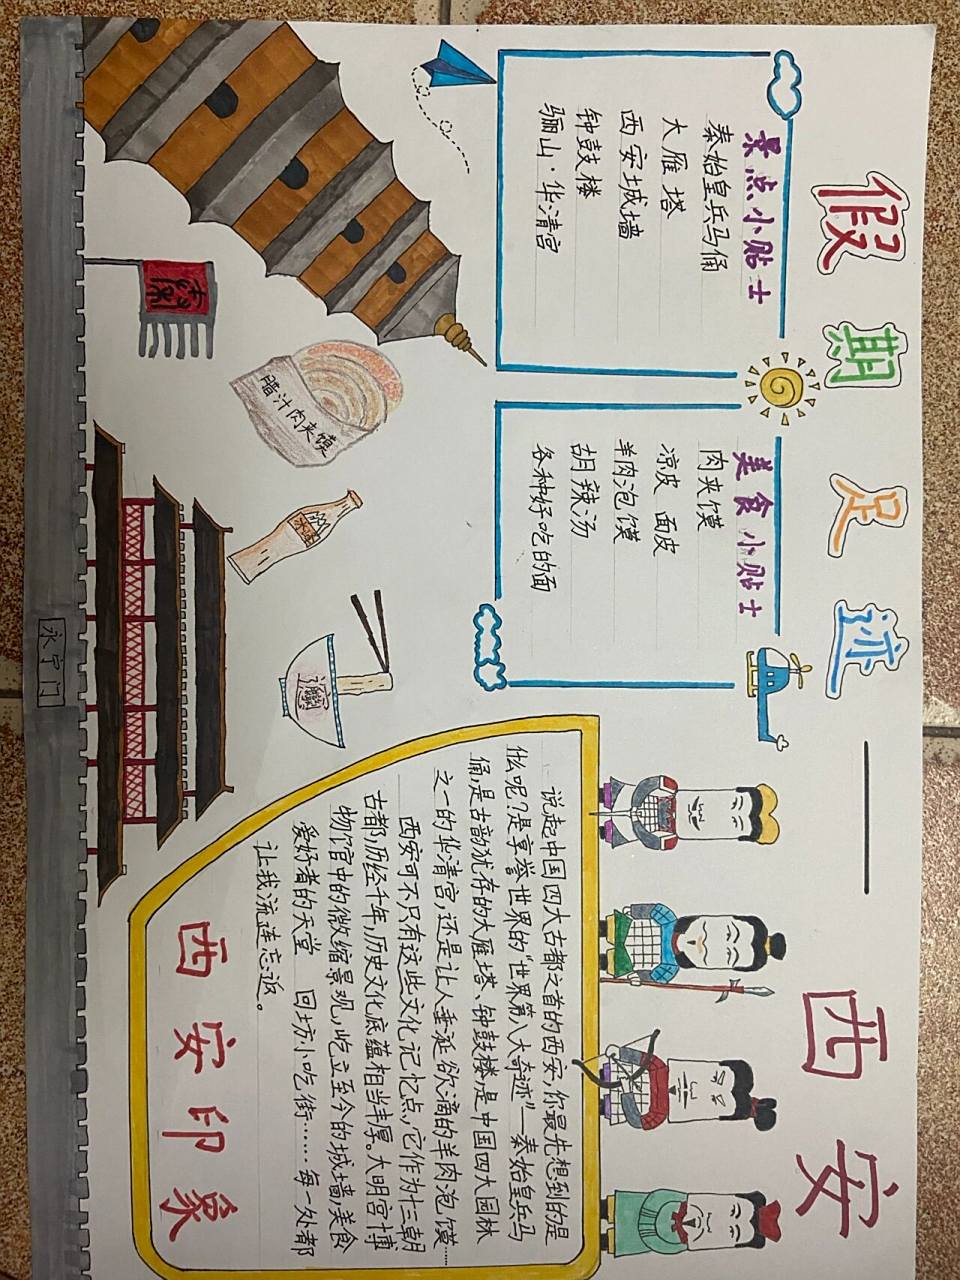 假期足迹——西安
景点小贴士
秦始皇兵马俑
大雁塔
西安城墙
钟鼓楼
骊山·华清宫
美食小贴士
肉夹馍
凉皮 面皮
羊肉泡馍
胡辣汤
各种好吃的面
腊汁肉夹馍
冰峰
秦
永宁门
说起中国四大古都之首的西安,你最先想到的是
什么呢?是享誉世界的"世界第八大奇迹"——秦始皇兵马
俑,是古韵犹存的大雁塔、钟鼓楼,是中国四大园林
之一的华清宫,还是让人垂涎欲滴的羊肉泡馍……
西安可不只有这些文化记忆点,它作为十三朝
古都,历经千年,历史文化底蕴相当丰厚。大明宫博
物馆中的微缩景观,屹立至今的城墙,美食
爱好者的天堂 回坊小吃街……每一处都
让我流连忘返。
西安印象